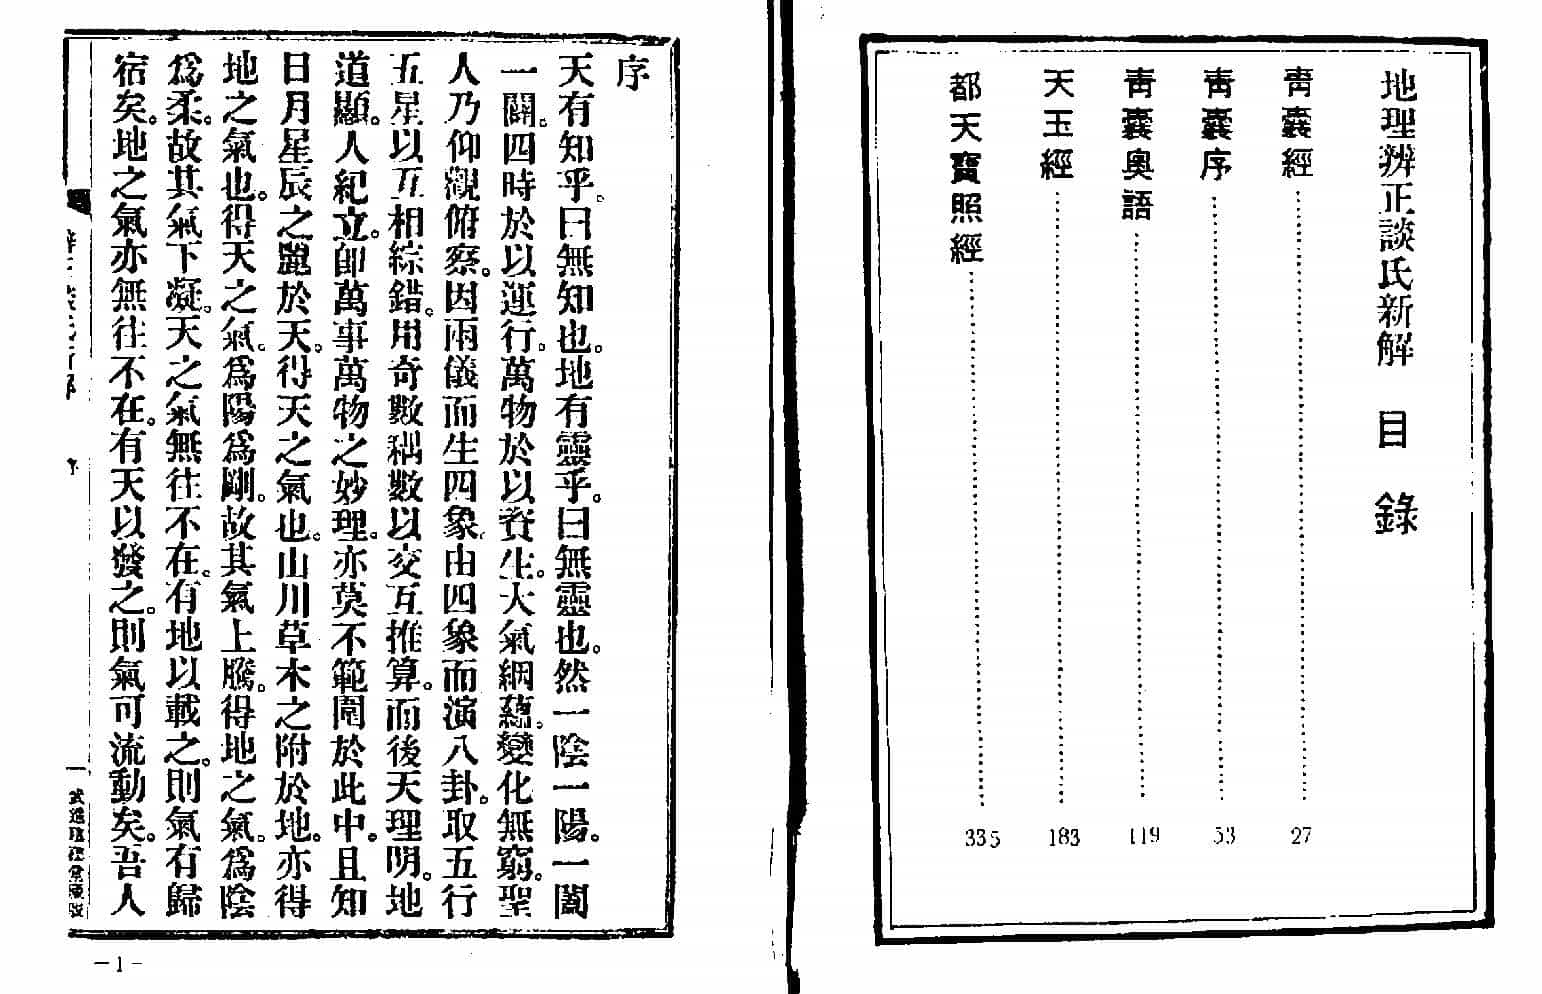 地理辨正談氏新解 目錄
青囊經 27
青囊序 53
青囊奧語 119
天玉經 183
都天寶照經 335
序
天有知乎。曰無知也。地有靈乎。曰無靈也。然一陰一陽。一闔
一闢。四時於以運行。萬物於以資生。大氣絪蘊。變化無窮。聖
人乃仰觀俯察。因兩儀而生四象。由四象而演八卦。取五行
五星以互相綜錯。用奇數耦數以交互推算。而後天理明。地
道顯。人紀立。即萬事萬物之妙理。亦莫不範圍於此中。且知
日月星辰之麗於天。得天之氣也。山川草木之附於地。亦得
地之氣也。得天之氣。為陽為剛。故其氣上騰。得地之氣。為陰
為柔。故其氣下凝。天之氣無往不在。有地以載之。則氣有歸
宿矣。地之氣亦無往不在。有天以發之。則氣可流動矣。吾人
序
一
-1-